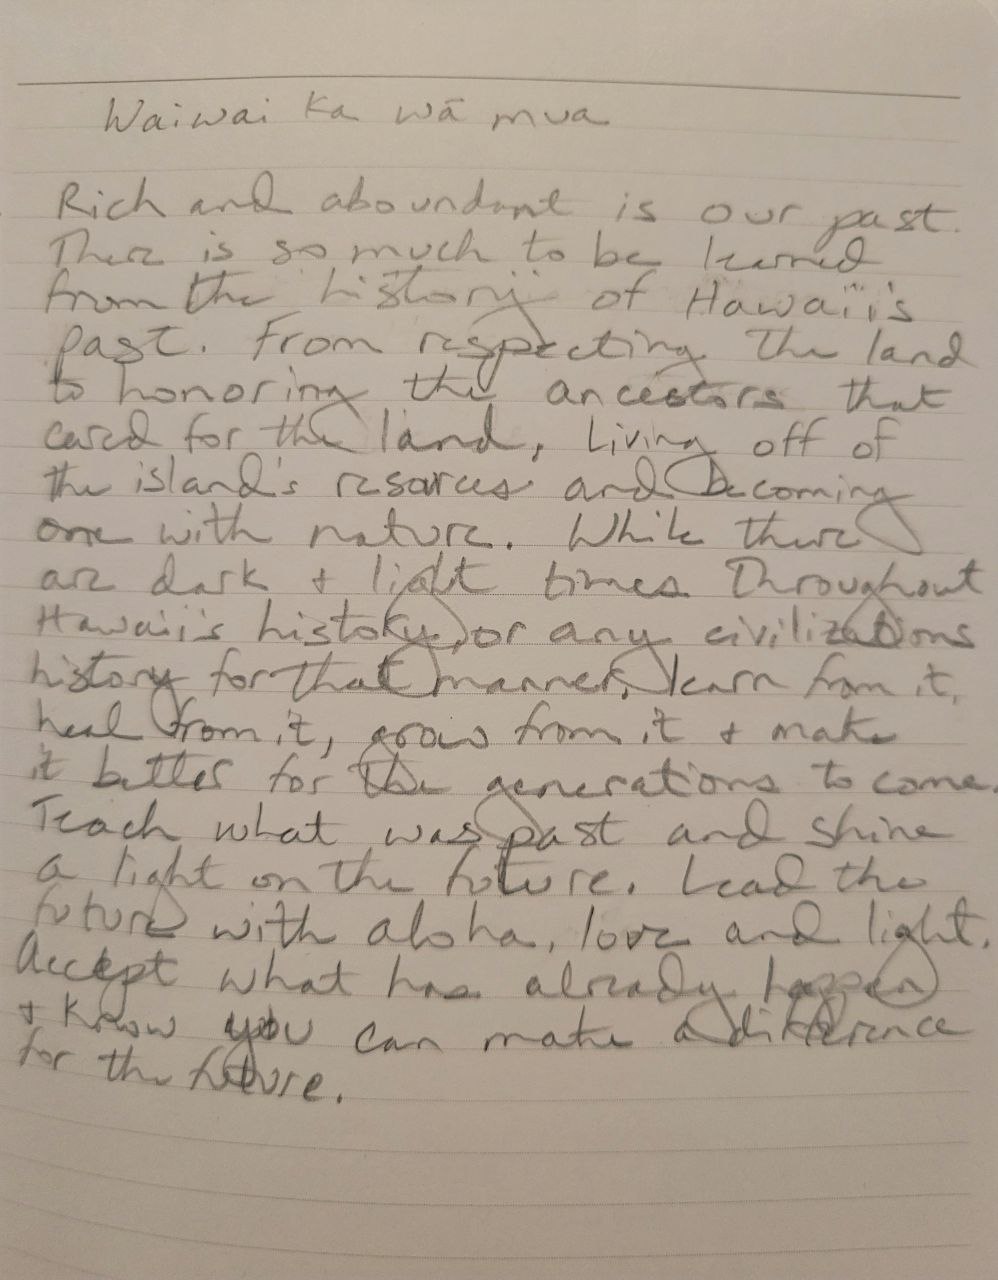 Waiwai ka wā mua
Rich and aboundant is our past.
There is so much to be learned
from the history of Hawaii's
past. From respecting the land
to honoring the ancestors that
cared for the land, Living off of
the island's resources and becoming
one with nature. While there
are dark + light times throughout
Hawaii's history, or any civilizations
history for that manner, learn from it,
heal from it, grow from it + make
it better for the generations to come.
Teach what was past and shine
a light on the future. Lead the
future with aloha, love and light.
Accept what has already happen
+ know you can make a difference
for the future.